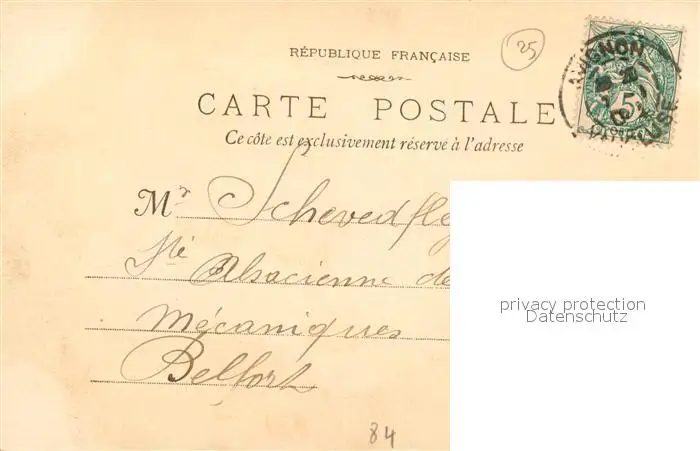 RÉPUBLIQUE FRANÇAISE
25
CARTE POSTALE
Ce côté est exclusivement réservé à l'adresse
AVIGNON
5
Mr Schevedfle
Sté Alsacienne de
Mécaniques
Belfort
84
privacy protection
Datenschutz